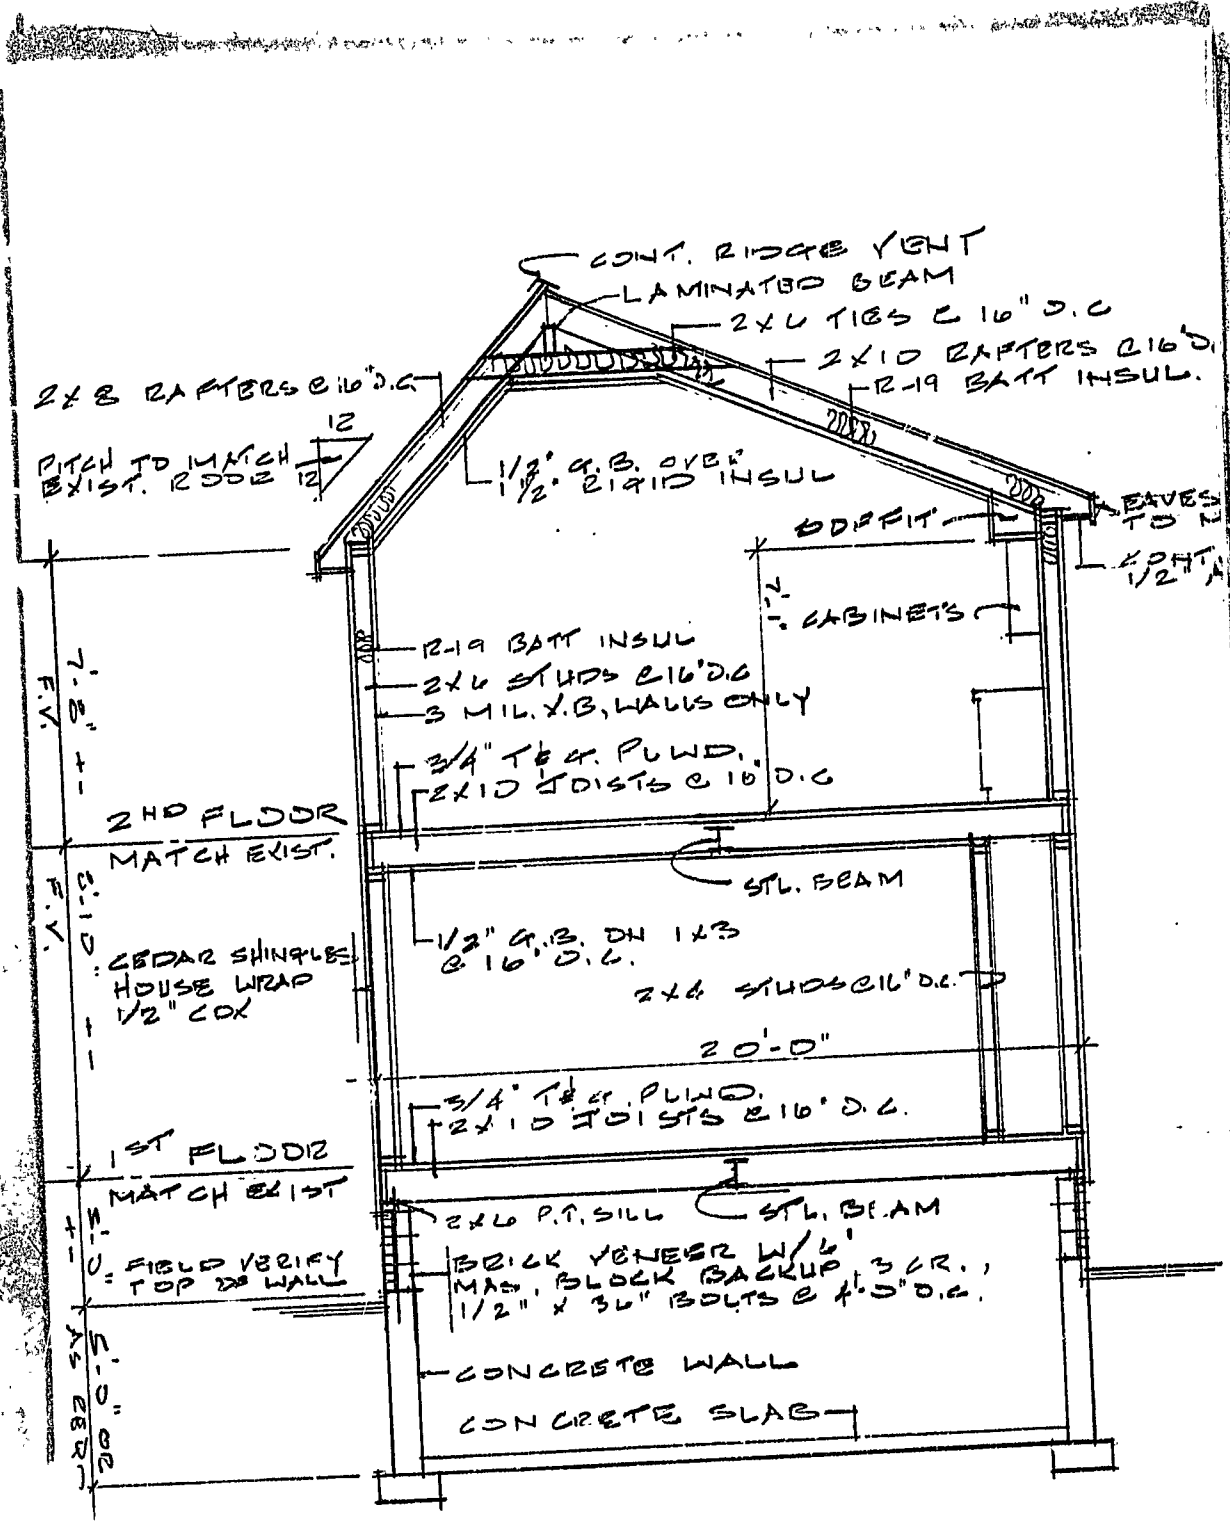 CONT. RIDGE VENT
LAMINATED BEAM
2X6 TIES @ 16" O.C
2X10 RAFTERS @16"O.
R-19 BATT INSUL.
2X8 RAFTERS @16"O.C
12
12
PITCH TO MATCH
EXIST. ROOF
1/2" G.B. OVER
1 1/2" RIGID INSUL
SOFFIT
EAVES
TO
CONT.
1/2"
7'-1"
CABINETS
R-19 BATT INSUL
2X6 STUDS @16"O.C
3 MIL. V.B, WALLS ONLY
3/4" T&G. PLWD.
2X10 JOISTS @ 16" O.C
7'-8" +-
F.V.
2ND FLOOR
MATCH EXIST.
STL. BEAM
1/2" G.B. ON 1X3
@ 16" O.C.
8'-10" +-
F.V.
CEDAR SHINGLES
HOUSE WRAP
1/2" CDX
2X4 STUDS @16" O.C.
20'-0"
3/4" T&G. PLWD.
2X10 JOISTS @ 16" O.C.
1ST FLOOR
MATCH EXIST
2X6 P.T. SILL
STL. BEAM
FIELD VERIFY
TOP OF WALL
+-
BRICK VENEER W/6"
MAS. BLOCK BACKUP, 3 CR.,
1/2" X 36" BOLTS @ 4'-0" O.C.
CONCRETE WALL
CONCRETE SLAB
OR
AS